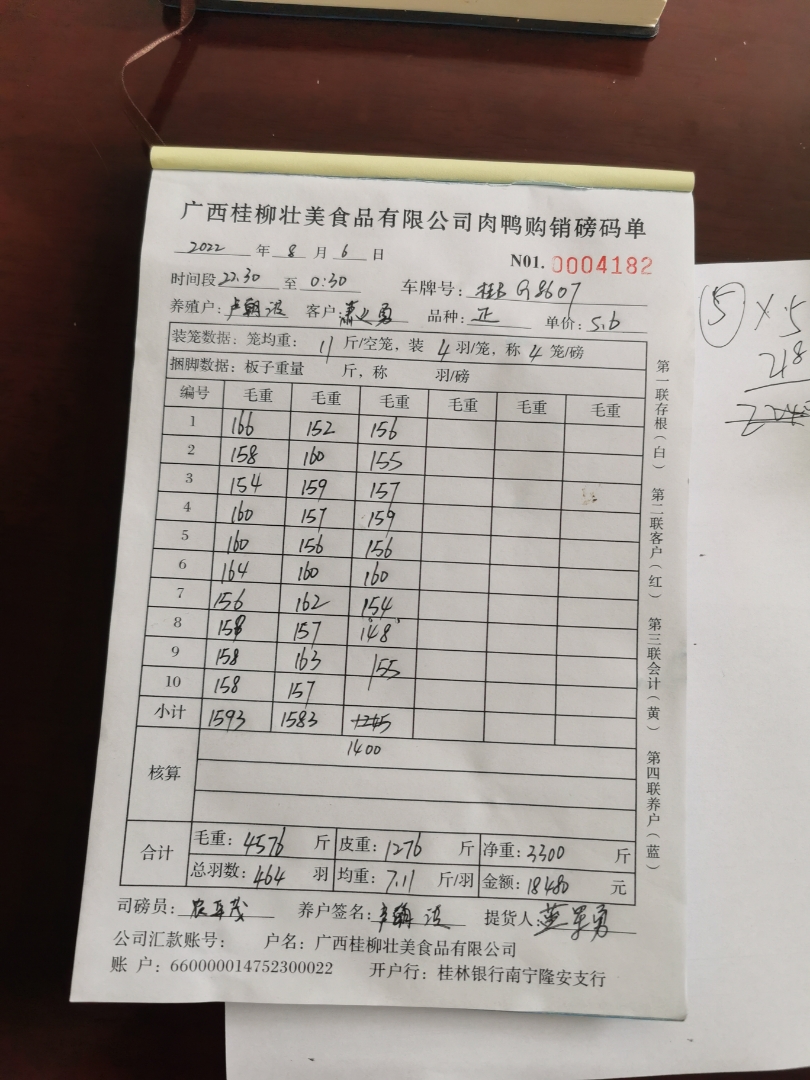 广西桂柳壮美食品有限公司肉鸭购销磅码单
2022 年 8 月 6 日 N01. 0004182
时间段 22:30 至 0:30 车牌号: 桂 G8607
养殖户: 卢 波 客户: 萧 勇 品种: 正 单价: 5.6
装笼数据: 笼均重: 11 斤/空笼, 装 4 羽/笼, 称 4 笼/磅
捆脚数据: 板子重量 斤, 称 羽/磅
编号 毛重 毛重 毛重 毛重 毛重 毛重
1 166 152 156
2 158 160 155
3 154 159 157
4 160 157 159
5 160 156 156
6 164 160 160
7 156 162 154
8 158 157 148
9 158 163 155
10 158 157
小计 1593 1583 1245
1400
核算
合计 毛重: 4576 斤 皮重: 1276 斤 净重: 3300 斤
总羽数: 464 羽 均重: 7.11 斤/羽 金额: 18480 元
司磅员: 茂 养户签名: 卢 波 提货人: 勇
公司汇款账号: 户名: 广西桂柳壮美食品有限公司
账 户: 660000014752300022 开户行: 桂林银行南宁隆安支行
第一联存根(白) 第二联客户(红) 第三联会计(黄) 第四联养户(蓝)
5 × 5
218